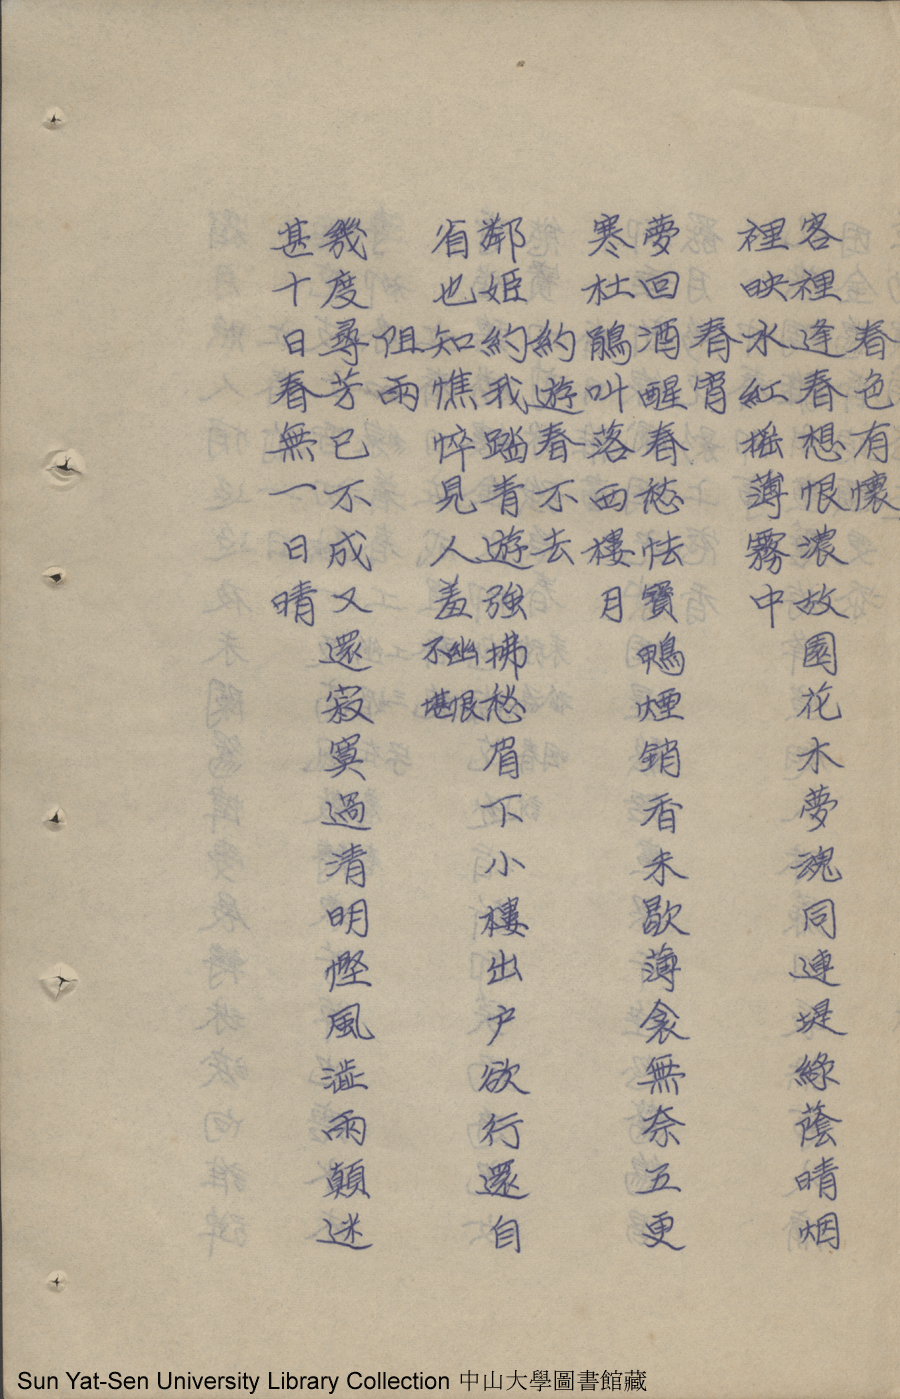 春色有懷
客裡逢春想恨濃故園花木夢魂同連堤綠蔭晴烟
裡映水紅搖薄霧中
春宵
夢回酒醒春愁怯寶鴨煙銷香未歇薄衾無奈五更
寒杜鵑叫落西樓月
約遊春不去
鄰姬約我踏青遊強拂愁眉下小樓出戶欲行還自
省也知憔悴見人羞幽恨不堪
阻雨
幾度尋芳已不成又還寂寞過清明慳風澁雨顛迷
甚十日春無一日晴
Sun Yat-Sen University Library Collection 中山大學圖書館藏